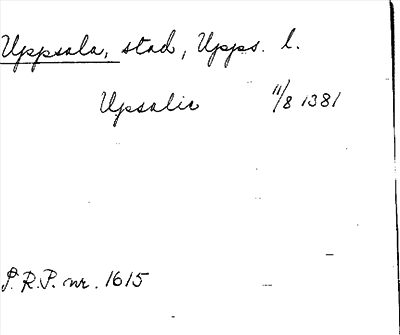 Uppsala, stad, Upps. l.
Upsalie 11/8 1381
P.R.P. nr. 1615